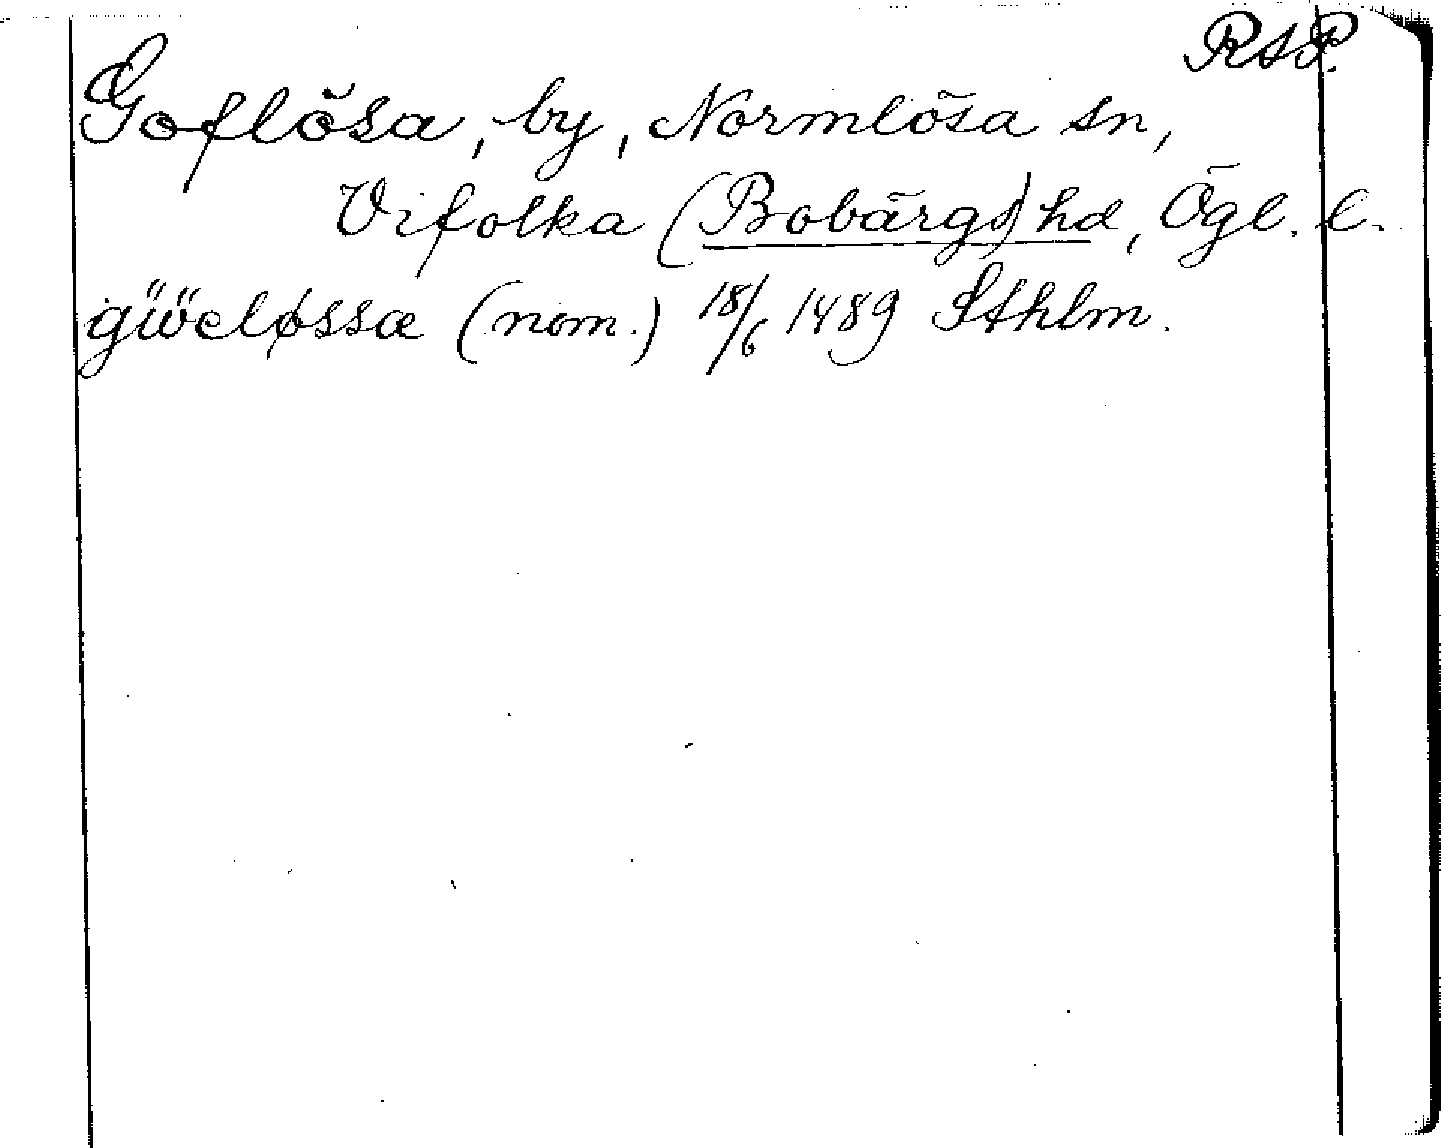 RAP.
Goflösa, by, Normlösa sn,
Vifolka (Bobärgs) hd, Ögl. l.
gẅëcløssæ (nom.) 18/6 1489 Sthlm.